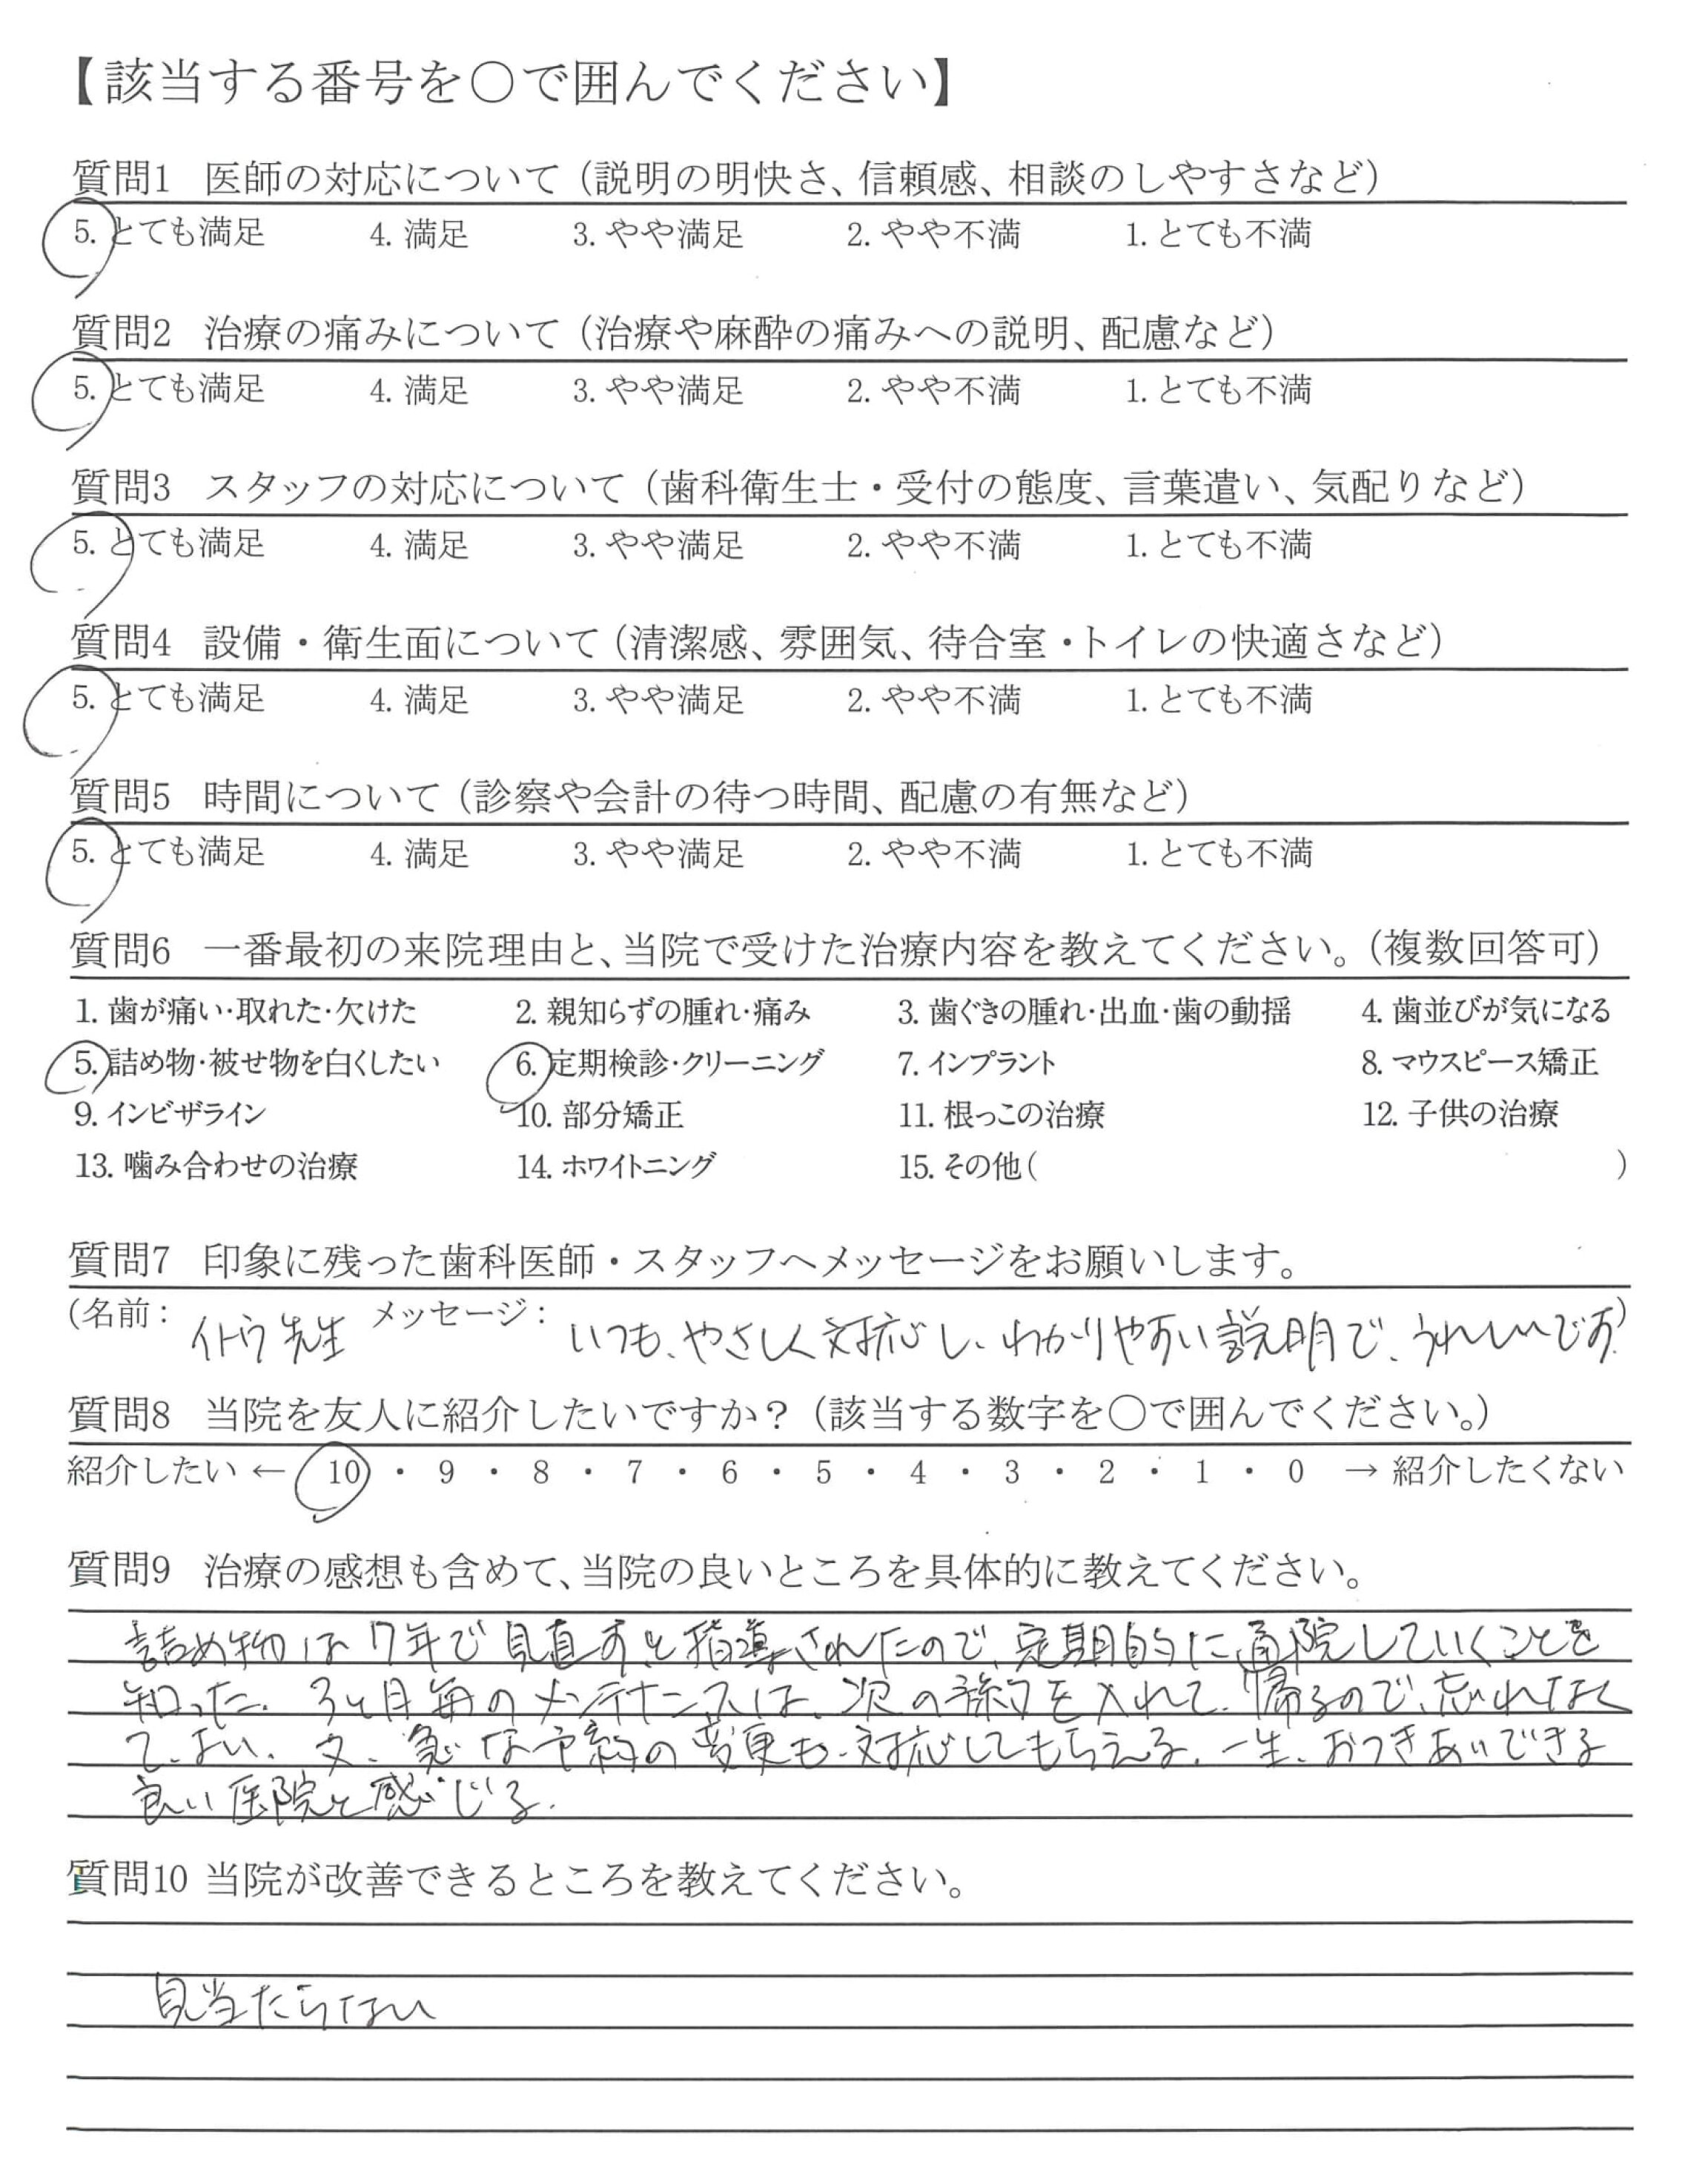 【該当する番号を〇で囲んでください】
質問1 医師の対応について（説明の明快さ、信頼感、相談のしやすさなど）
5. とても満足 4. 満足 3. やや満足 2. やや不満 1. とても不満
質問2 治療の痛みについて（治療や麻酔の痛みへの説明、配慮など）
5. とても満足 4. 満足 3. やや満足 2. やや不満 1. とても不満
質問3 スタッフの対応について（歯科衛生士・受付の態度、言葉遣い、気配りなど）
5. とても満足 4. 満足 3. やや満足 2. やや不満 1. とても不満
質問4 設備・衛生面について（清潔感、雰囲気、待合室・トイレの快適さなど）
5. とても満足 4. 満足 3. やや満足 2. やや不満 1. とても不満
質問5 時間について（診察や会計の待つ時間、配慮の有無など）
5. とても満足 4. 満足 3. やや満足 2. やや不満 1. とても不満
質問6 一番最初の来院理由と、当院で受けた治療内容を教えてください。（複数回答可）
1. 歯が痛い・取れた・欠けた 2. 親知らずの腫れ・痛み 3. 歯ぐきの腫れ・出血・歯の動揺 4. 歯並びが気になる
5. 詰め物・被せ物を白くしたい 6. 定期検診・クリーニング 7. インプラント 8. マウスピース矯正
9. インビザライン 10. 部分矯正 11. 根っこの治療 12. 子供の治療
13. 噛み合わせの治療 14. ホワイトニング 15. その他（ ）
質問7 印象に残った歯科医師・スタッフへメッセージをお願いします。
（名前： イトウ先生 メッセージ： いつも、やさしく対応し、わかりやすい説明で、うれしいです。）
質問8 当院を友人に紹介したいですか？（該当する数字を〇で囲んでください。）
紹介したい ← 10 ・ 9 ・ 8 ・ 7 ・ 6 ・ 5 ・ 4 ・ 3 ・ 2 ・ 1 ・ 0 → 紹介したくない
質問9 治療の感想も含めて、当院の良いところを具体的に教えてください。
詰め物は7年で見直すと指導されたので、定期的に通院していくことを
知った。3ヶ月毎のメンテナンスは、次の予約を入れて、帰るので、忘れなく
て、よい。又、急な予約の変更も、対応してもらえる。一生、おつきあいできる
良い医院と感じる。
質問10 当院が改善できるところを教えてください。
見当たらない